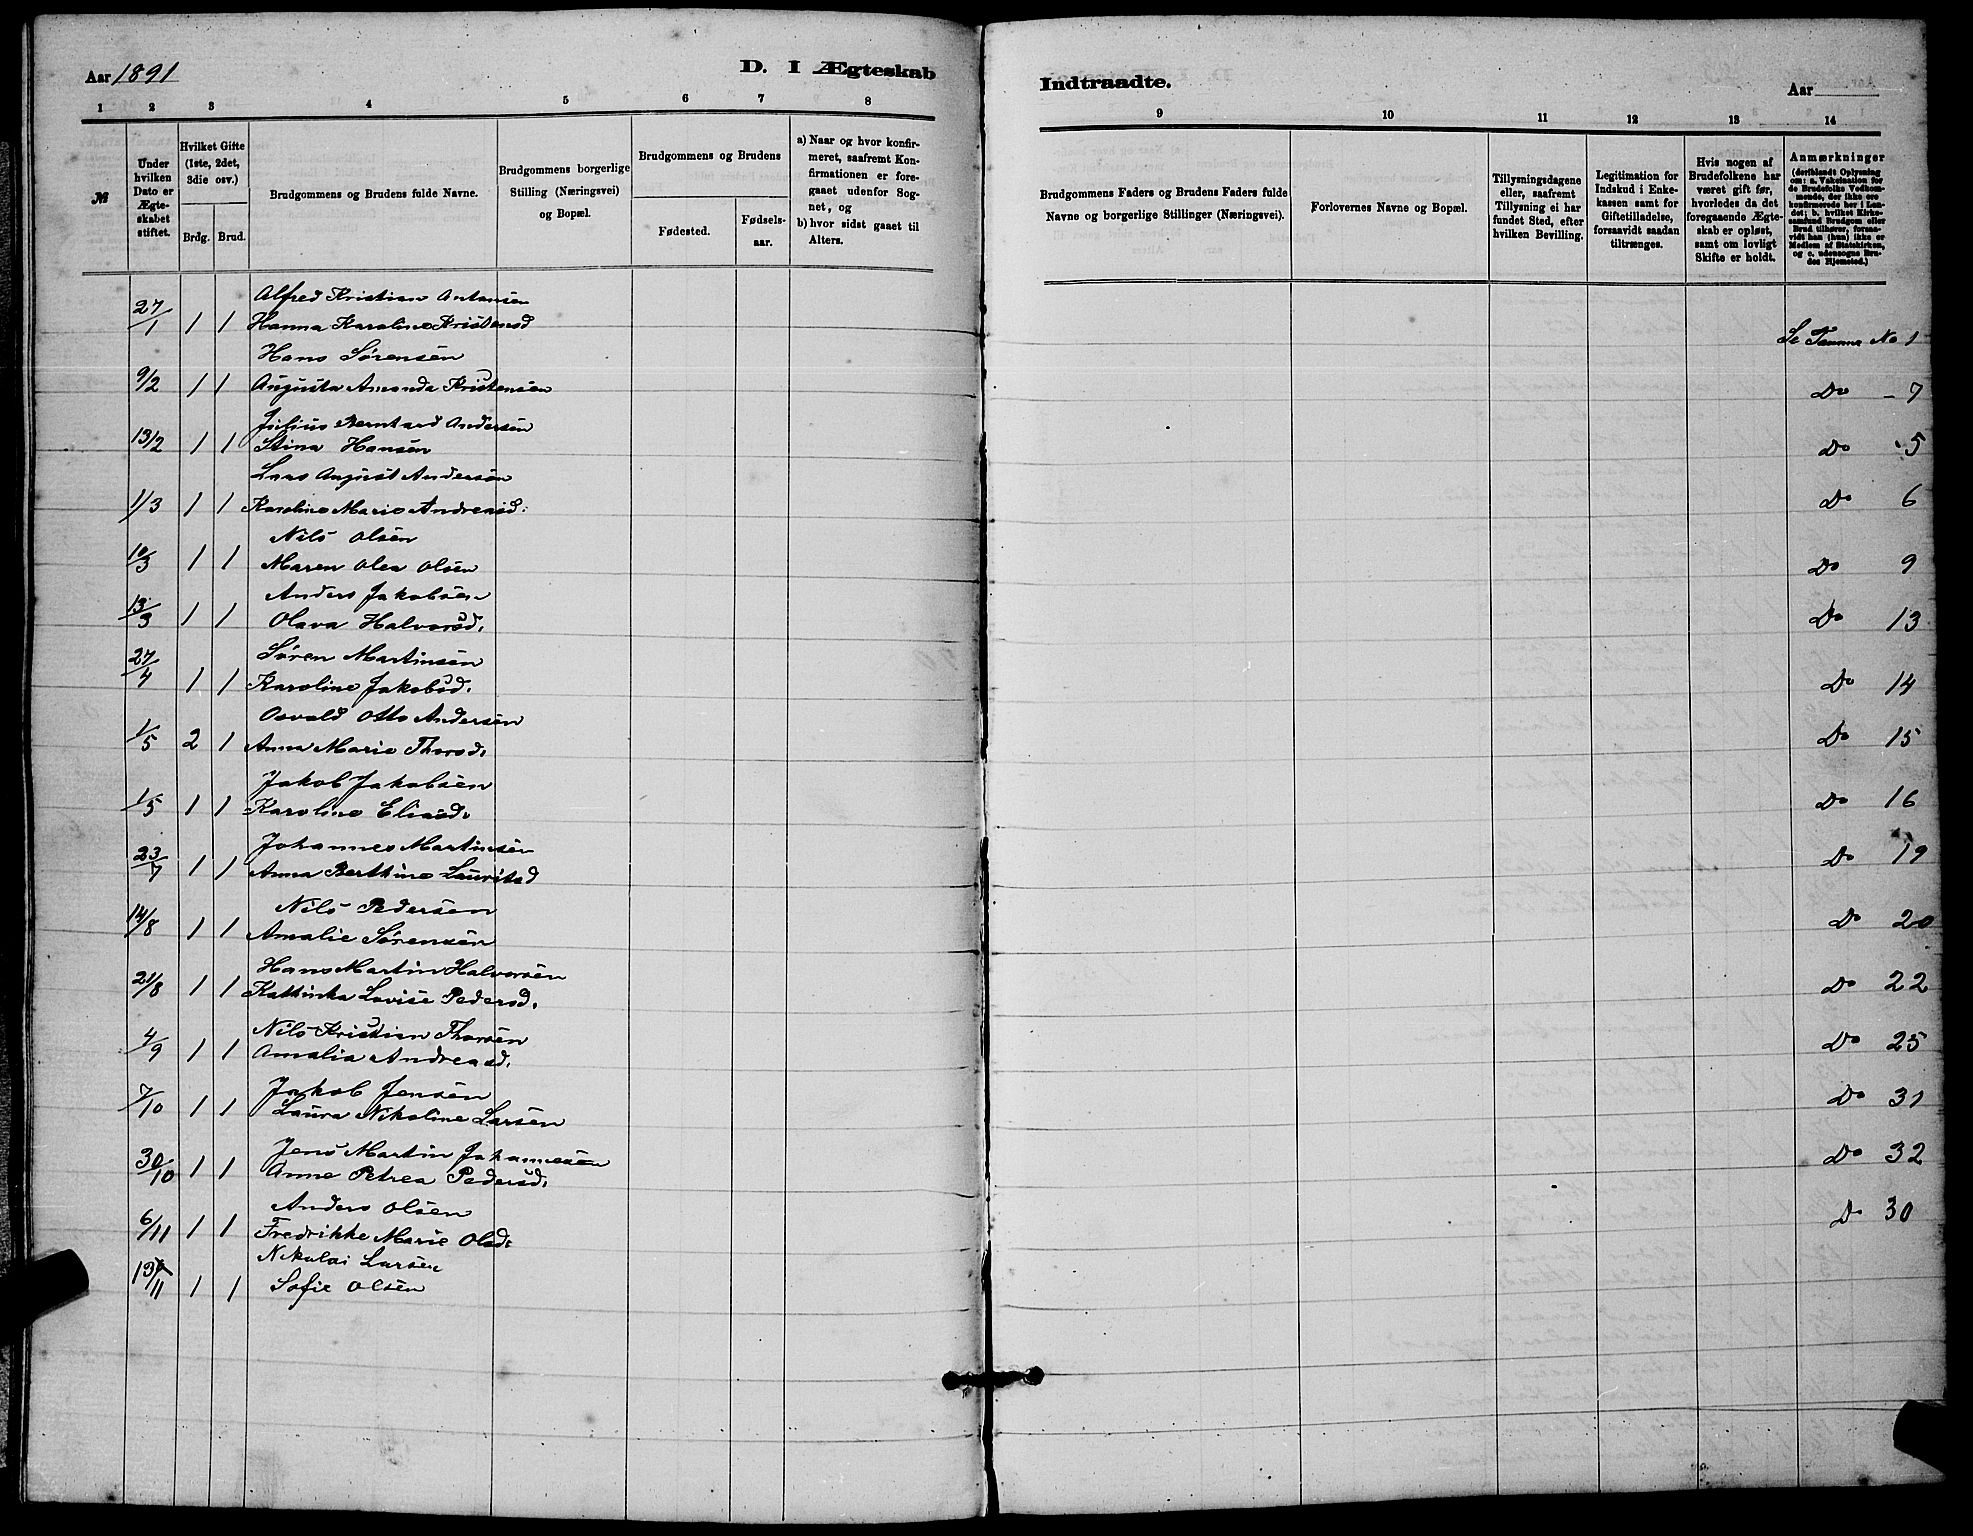 Aar 1891
D. I Ægteskab
Indtraadte.
Aar
1 2 3 4 5 6 7 8
9 10 11 12 13 14
№
Under hvilken Dato er Ægteskabet stiftet.
Hvilket Gifte (1ste, 2det, 3die osv.)
Brdg. Brud.
Brudgommens og Brudens fulde Navne.
Brudgommens borgerlige Stilling (Næringsvei) og Bopæl.
Brudgommens og Brudens
Fødested.
Fødselsaar.
a) Naar og hvor konfirmeret, saafremt Konfirmationen er foregaaet udenfor Sognet, og
b) hvor sidst gaaet til Alters.
Brudgommens Faders og Brudens Faders fulde Navne og borgerlige Stillinger (Næringsvei).
Forlovernes Navne og Bopæl.
Tillysningsdagene eller, saafremt Tillysning ei har fundet Sted, efter hvilken Bevilling.
Legitimation for Indskud i Enkekassen samt for Giftetilladelse, forsaavidt saadan tiltrænges.
Hvis nogen af Brudefolkene har været gift før, hvorledes da det foregaaende Ægteskab er opløst, samt om lovligt Skifte er holdt.
Anmærkninger (deriblandt Oplysning om: a. Vakcination for de Brudefolks Vedkommende, der ikke ere konfirmerede her i Landet; b. hvilket Kirkesamfund Brudgom eller Brud tilhører, forsaavidt han (hun) ikke er Medlem af Statskirken, og c. udensogns Brudes Hjemsted.)
Alfred Kristian Antonsen
27/1 1 1 Hanna Karoline Kristensd Se Tamme No 1
Hans Sørensen
9/2 1 1 Augusta Amanda Kristensen Do - 7
Julius Bernhard Andersen
13/2 1 1 Stina Hansen Do - 5
Lars August Andersen
1/3 1 1 Karoline Marie Andreasd. Do 6
Nils Olsen
10/3 1 1 Maren Olea Olsen Do 9
Anders Jakobsen
13/3 1 1 Olava Halvorsd. Do 13
Søren Martinsen
27/4 1 1 Karoline Jakobsd. Do 14
Osvald Otto Andersen
1/5 2 1 Anna Marie Thorsd. Do 15
Jakob Jakobsen
1/5 1 1 Karoline Eliasd. Do 16
Johannes Martinsen
23/7 1 1 Anna Berthine Lauritsd Do 19
Nils Pedersen
14/8 1 1 Amalie Sørensen Do 20
Hans Martin Halvorsen
21/8 1 1 Kathinka Lovise Pedersd. Do 22
Nils Kristian Thorsen
4/9 1 1 Amalia Andreasd. Do 25
Jakob Jensen
7/10 1 1 Laura Nikoline Larsen Do 31
Jens Martin Johannesen
30/10 1 1 Anne Petrea Pedersd. Do 32
Anders Olsen
6/11 1 1 Fredrikke Marie Olsd. Do 30
Nikolai Larsen
13/11 1 1 Sofie Olsen